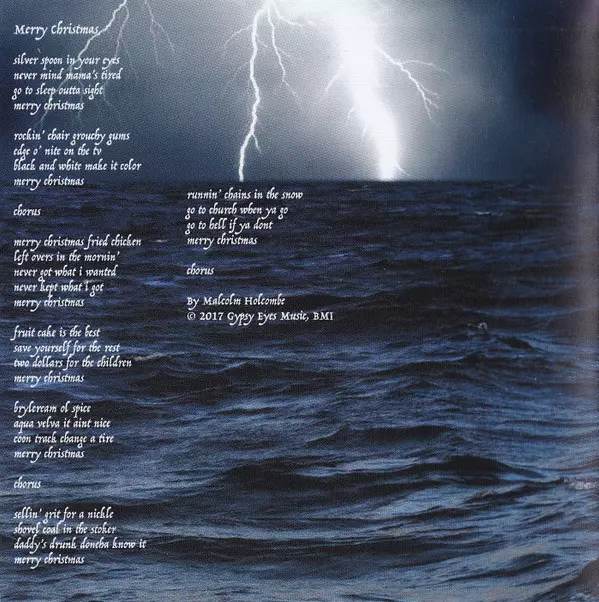 Merry Christmas
silver spoon in your eyes
never mind mama's tired
go to sleep outta sight
merry christmas
rockin' chair grouchy gums
edge o' nite on the tv
black and white make it color
merry christmas
chorus
merry christmas fried chicken
left overs in the mornin'
never got what i wanted
never kept what i got
merry christmas
fruit cake is the best
save yourself for the rest
two dollars for the children
merry christmas
brylercam ol spice
aqua velva it aint nice
coon track change a tire
merry christmas
chorus
sellin' grit for a nickle
shovel coal in the stoker
daddy's drunk doncha know it
merry christmas
runnin' chains in the snow
go to church when ya go
go to hell if ya dont
merry christmas
chorus
By Malcolm Holcombe
© 2017 Gypsy Eyes Music, BMI